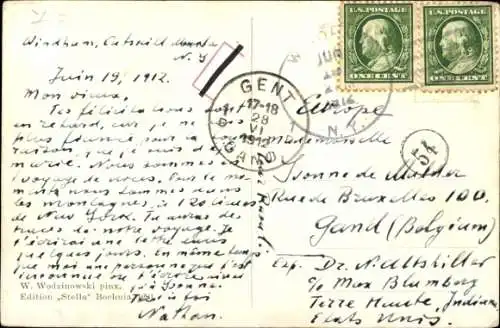 Windham, Catskill
N.Y
Juin 19, 1912.
Mon vieux,
Tes félicitations sont
en retard, car je ne suis
plus
raison que je suis déjà
marié. Nous sommes en
voyage de noces. Pour le mo-
ment nous sommes dans
les montagnes, à 120 lieues
de New York. Tu auras des
de notre voyage. Je
t'écrirai une lettre dans
quelques jours. En même temps
que moi une personne qui t'est
inconnue
Yvonne.
Nathan.
W. Wodzinowski pinx.
Edition „Stella" Bochnia
U.S. POSTAGE
ONE CENT
U.S. POSTAGE
ONE CENT
JUN
1912
N.Y.
GENT
17-18
28
VI
1912
GAND
Europe
Mademoiselle
Yvonne de Mulder
Rue de Bruxelles 100.
Gand (Belgium)
54
Exp. Dr. N. Altshiller
c/o Max Blumberg
Terre Haute, Indiana
Etats Unis